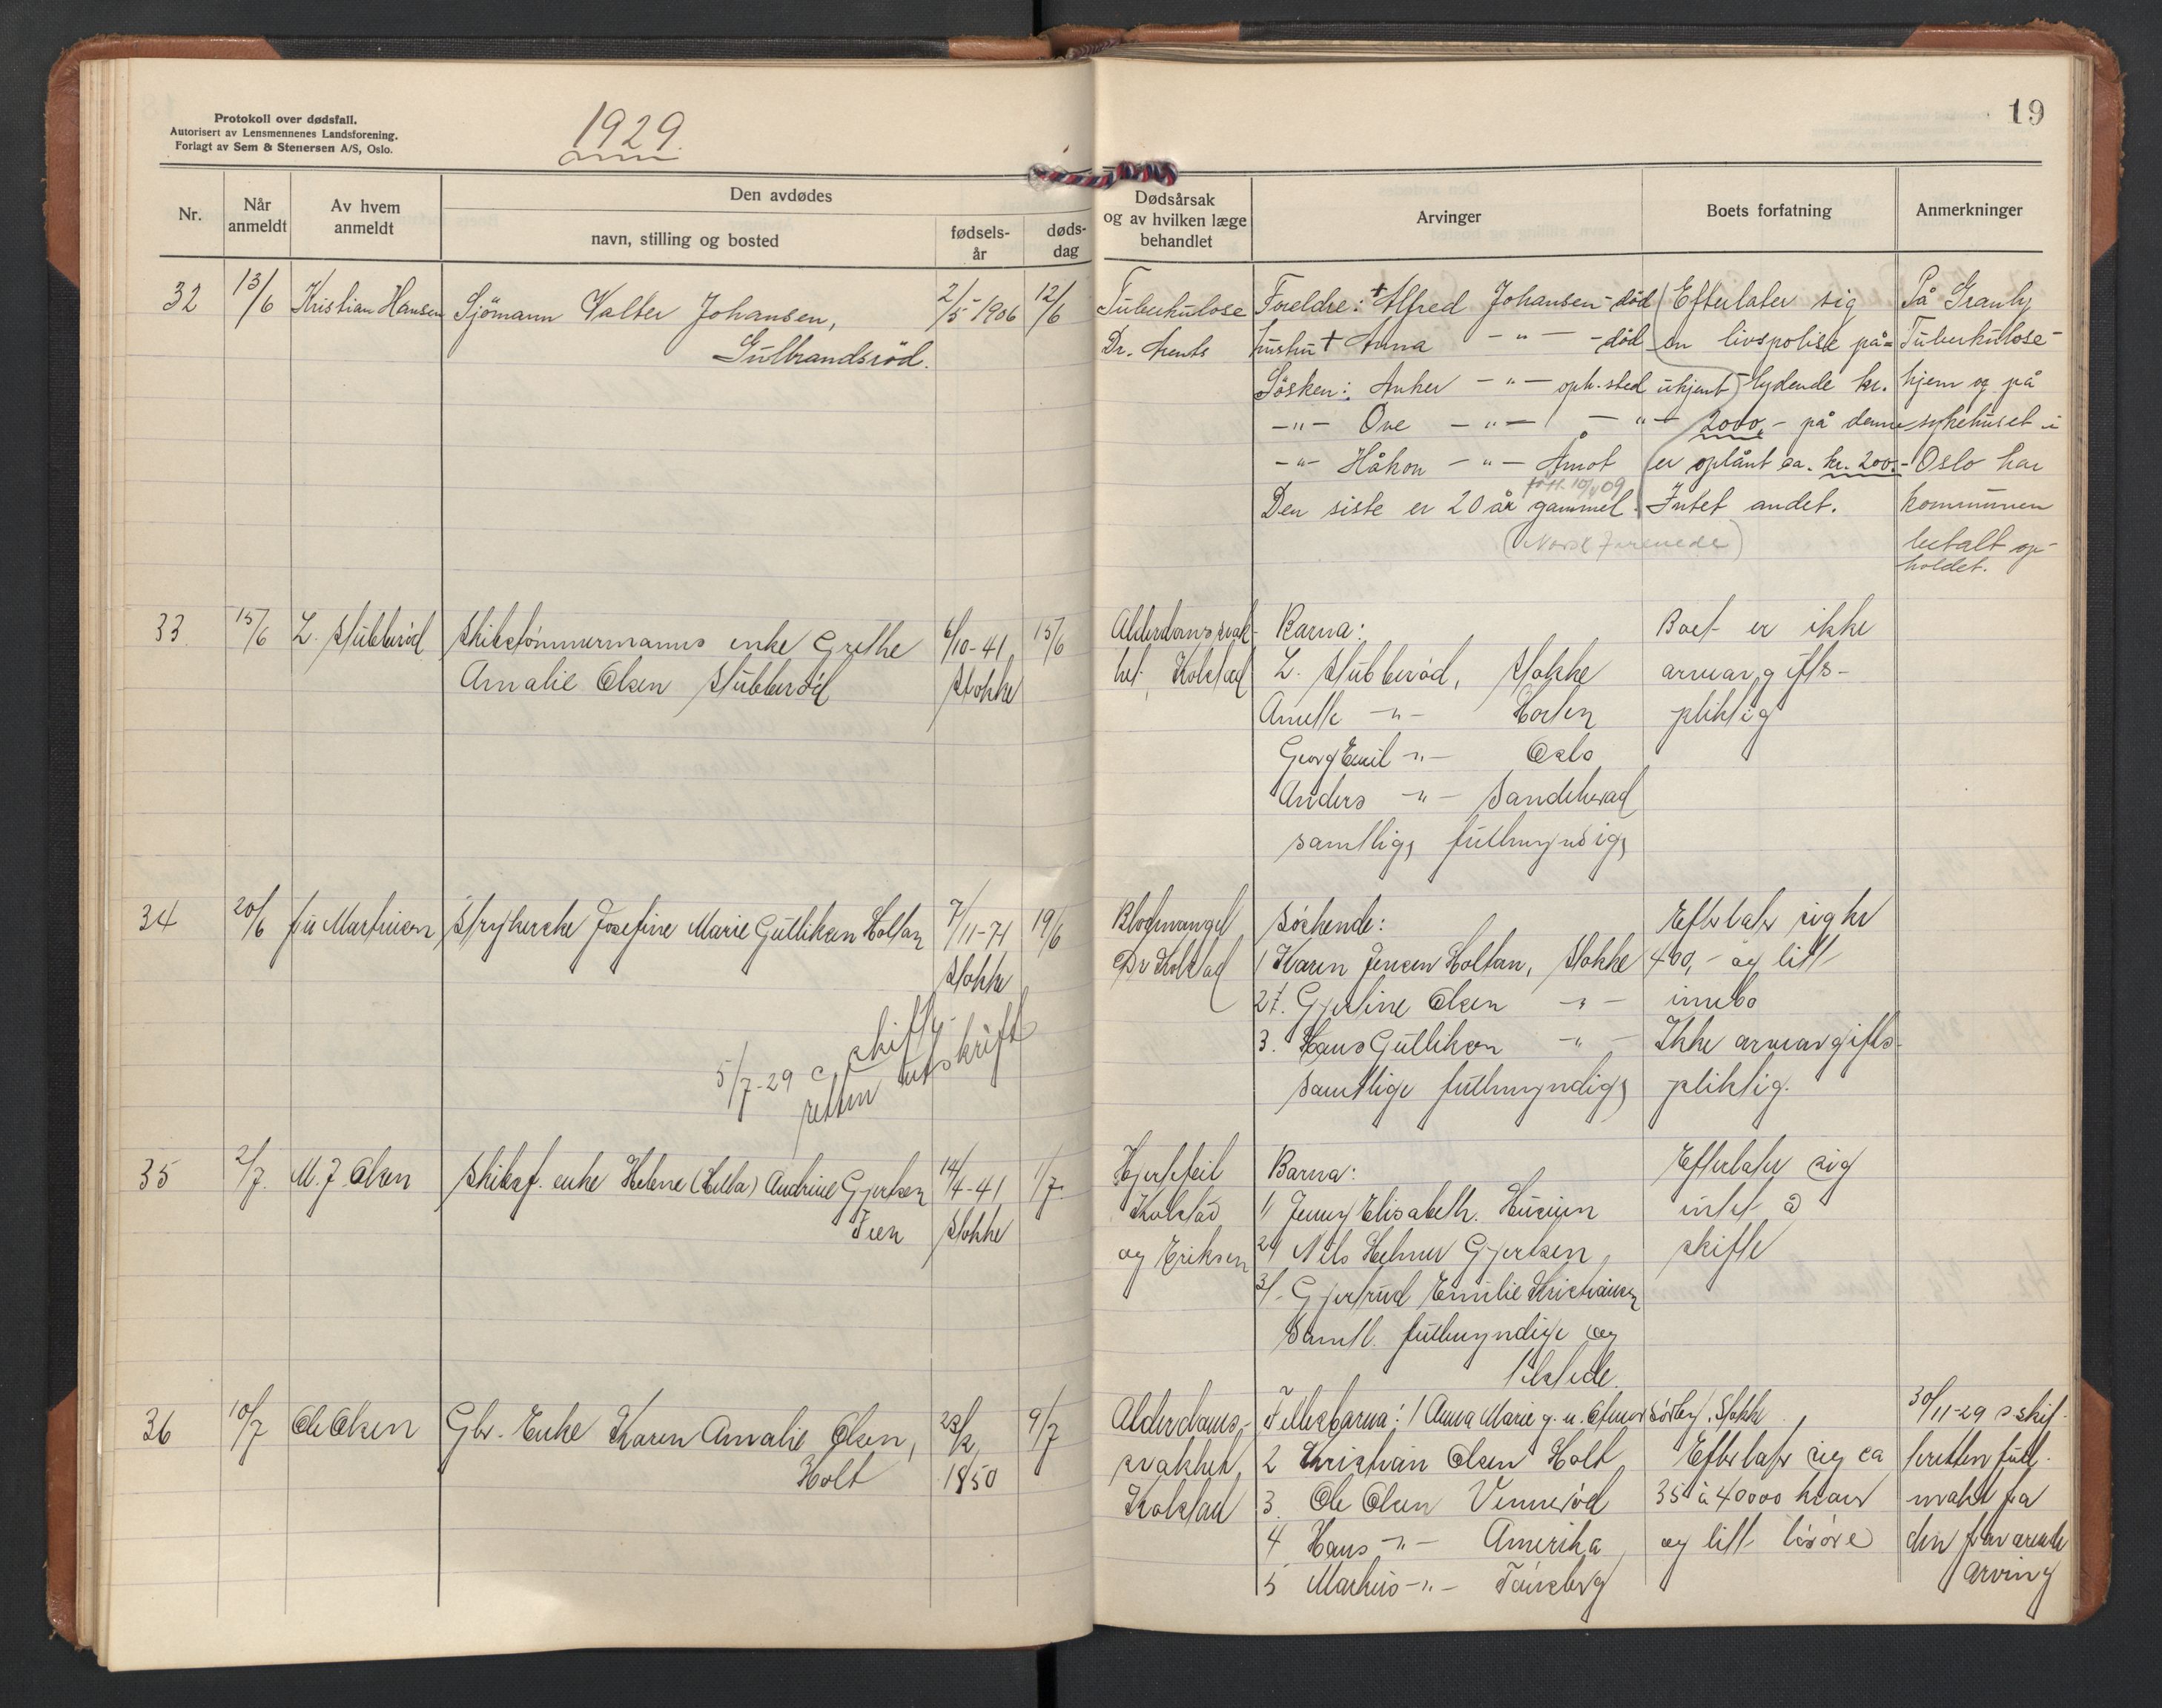 Protokoll over dødsfall.
Autorisert av Lensmennenes Landsforening.
Forlagt av Sem & Stenersen A/S, Oslo.
1929.
19
Nr.
Når anmeldt
Av hvem anmeldt
Den avdødes
navn, stilling og bosted
fødsels-år
døds-dag
Dødsårsak og av hvilken læge behandlet
Arvinger
Boets forfatning
Anmerkninger
32
13/6
Kristian Hansen
Sjömann Valter Johansen,
Gulbrandsröd.
2/5 1906
12/6
Tuberkulose
Dr. Arents
Foreldre: + Alfred Johansen - död
hustru + Anna -"- - död
Søsken: Anker -"- oph.sted ukjent
-"- Ove -"- -"-
-"- Håkon -"- Åmot
født 10/4 09
Den siste er 20 år gammel.
Efterlater sig
en livspolise på-
lydende kr.
2000,- på denne
er oplånt ca. kr. 200.-
Intet andet.
(Norske Forenede)
På Granly
Tuberkulose-
hjem og på
sykehuset i
Oslo har
kommunen
betalt op-
holdet.
33
15/6
L. Stubberød
Skibstømmermanns enke Grethe
Amalie Olsen Stubberød
6/10-41
Stokke
15/6
Alderdomssvak-
het, Kolstad
Barna:
L. Stubberød, Stokke
Anette -"- Horten
Georg Emil -"- Oslo
Anders -"- Sandeherad
samtlige fullmyndige
Boet er ikke
arveavgifts-
pliktig
34
20/6
fru Martinsen
Strykerske Josefine Marie Gulliksen Holtan
7/11-71
Stokke
19/6
5/7-29 skifte-
retten utskrift
Blodmangel
Dr Kolstad
Søskende:
1 Karen Jensen Holtan, Stokke
2 t. Gjertine Olsen -"-
3. Hans Gulliksen -"-
samtlige fullmyndige
Efterlater sig kr
400,- og litt
innbo
Ikke arveavgifts-
pliktig.
35
2/7.
M. J. Olsen
Skibsf. enke Helene (Helba) Andrine Gjertsen
Feen
14/4-41
Stokke
1/7.
Hjertefeil
Kolstad
og Eriksen
Barna:
1/ Jenny Elisabeth
2/ Nils Helmer Gjertsen
3/- Gjertrud Emilie Kristiansen
Samtl. fullmyndige og
tilstede.
Efterlater sig
intet å
skifte
36
10/7
Ole Olsen
Gbr. Enke Karen Amalie Olsen,
Holt
1850
9/7
Alderdoms-
svakhet
Kolstad
Fellesbarna: 1 Anna Marie g. m. Sørby, Stokke
2 Kristian Olsen Holt
3. Ole Olsen Vennerød
4 Hans -"- Amerika
5 Markus -"- Tønsberg
Efterlater sig ca
35 à 40000 kroner
og litt løsøre
30/11-29 s. skif-
teretten full-
makt fra
den fraværende
arving